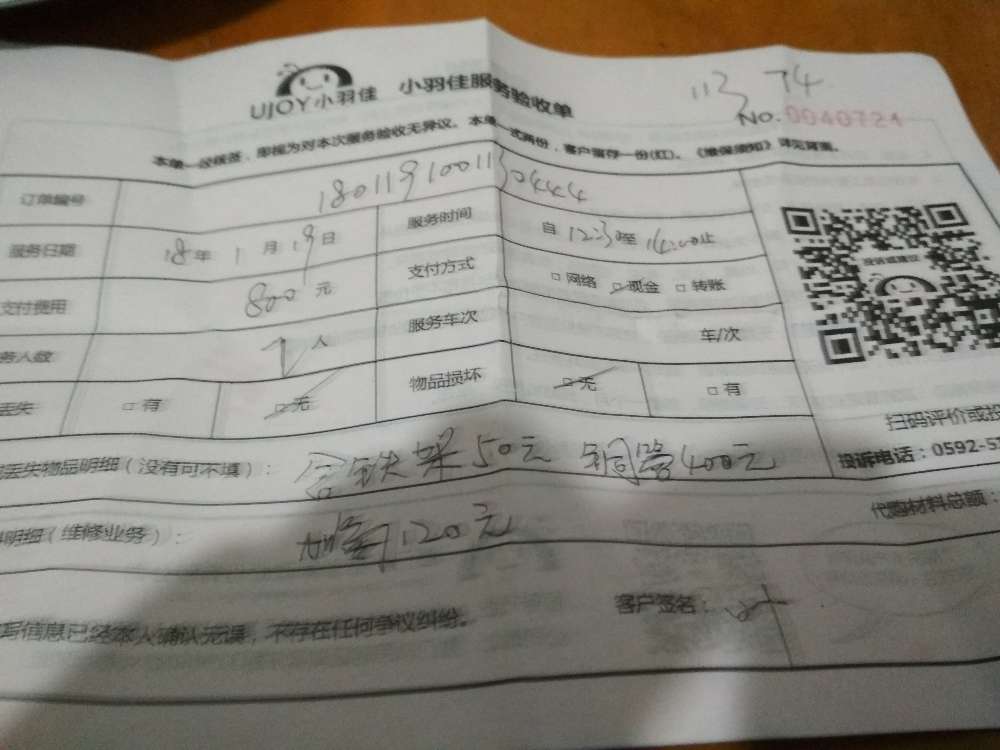 UJOY小羽佳 小羽佳服务验收单
113 74
No.0040724
本单一经核签,即视为对本次服务验收无异议。本单一式两份,客户留存一份(红)。《维保须知》详见背面。
订单编号 180119100113 0444
服务日期 18年1月19日 服务时间 自12:30至14:00止
支付费用 800元 支付方式 □网络 □现金 □转账
务人数 人 服务车次 车/次
丢失 □有 □无 物品损坏 □无 □有
扫码评价或投
丢失物品明细(没有可不填): 含铁架50元 铜管400元
投诉电话:0592-5
明细(维修业务): 120元
代购材料总额:
写信息已经本人确认无误,不存在任何争议纠纷。
客户签名:叶